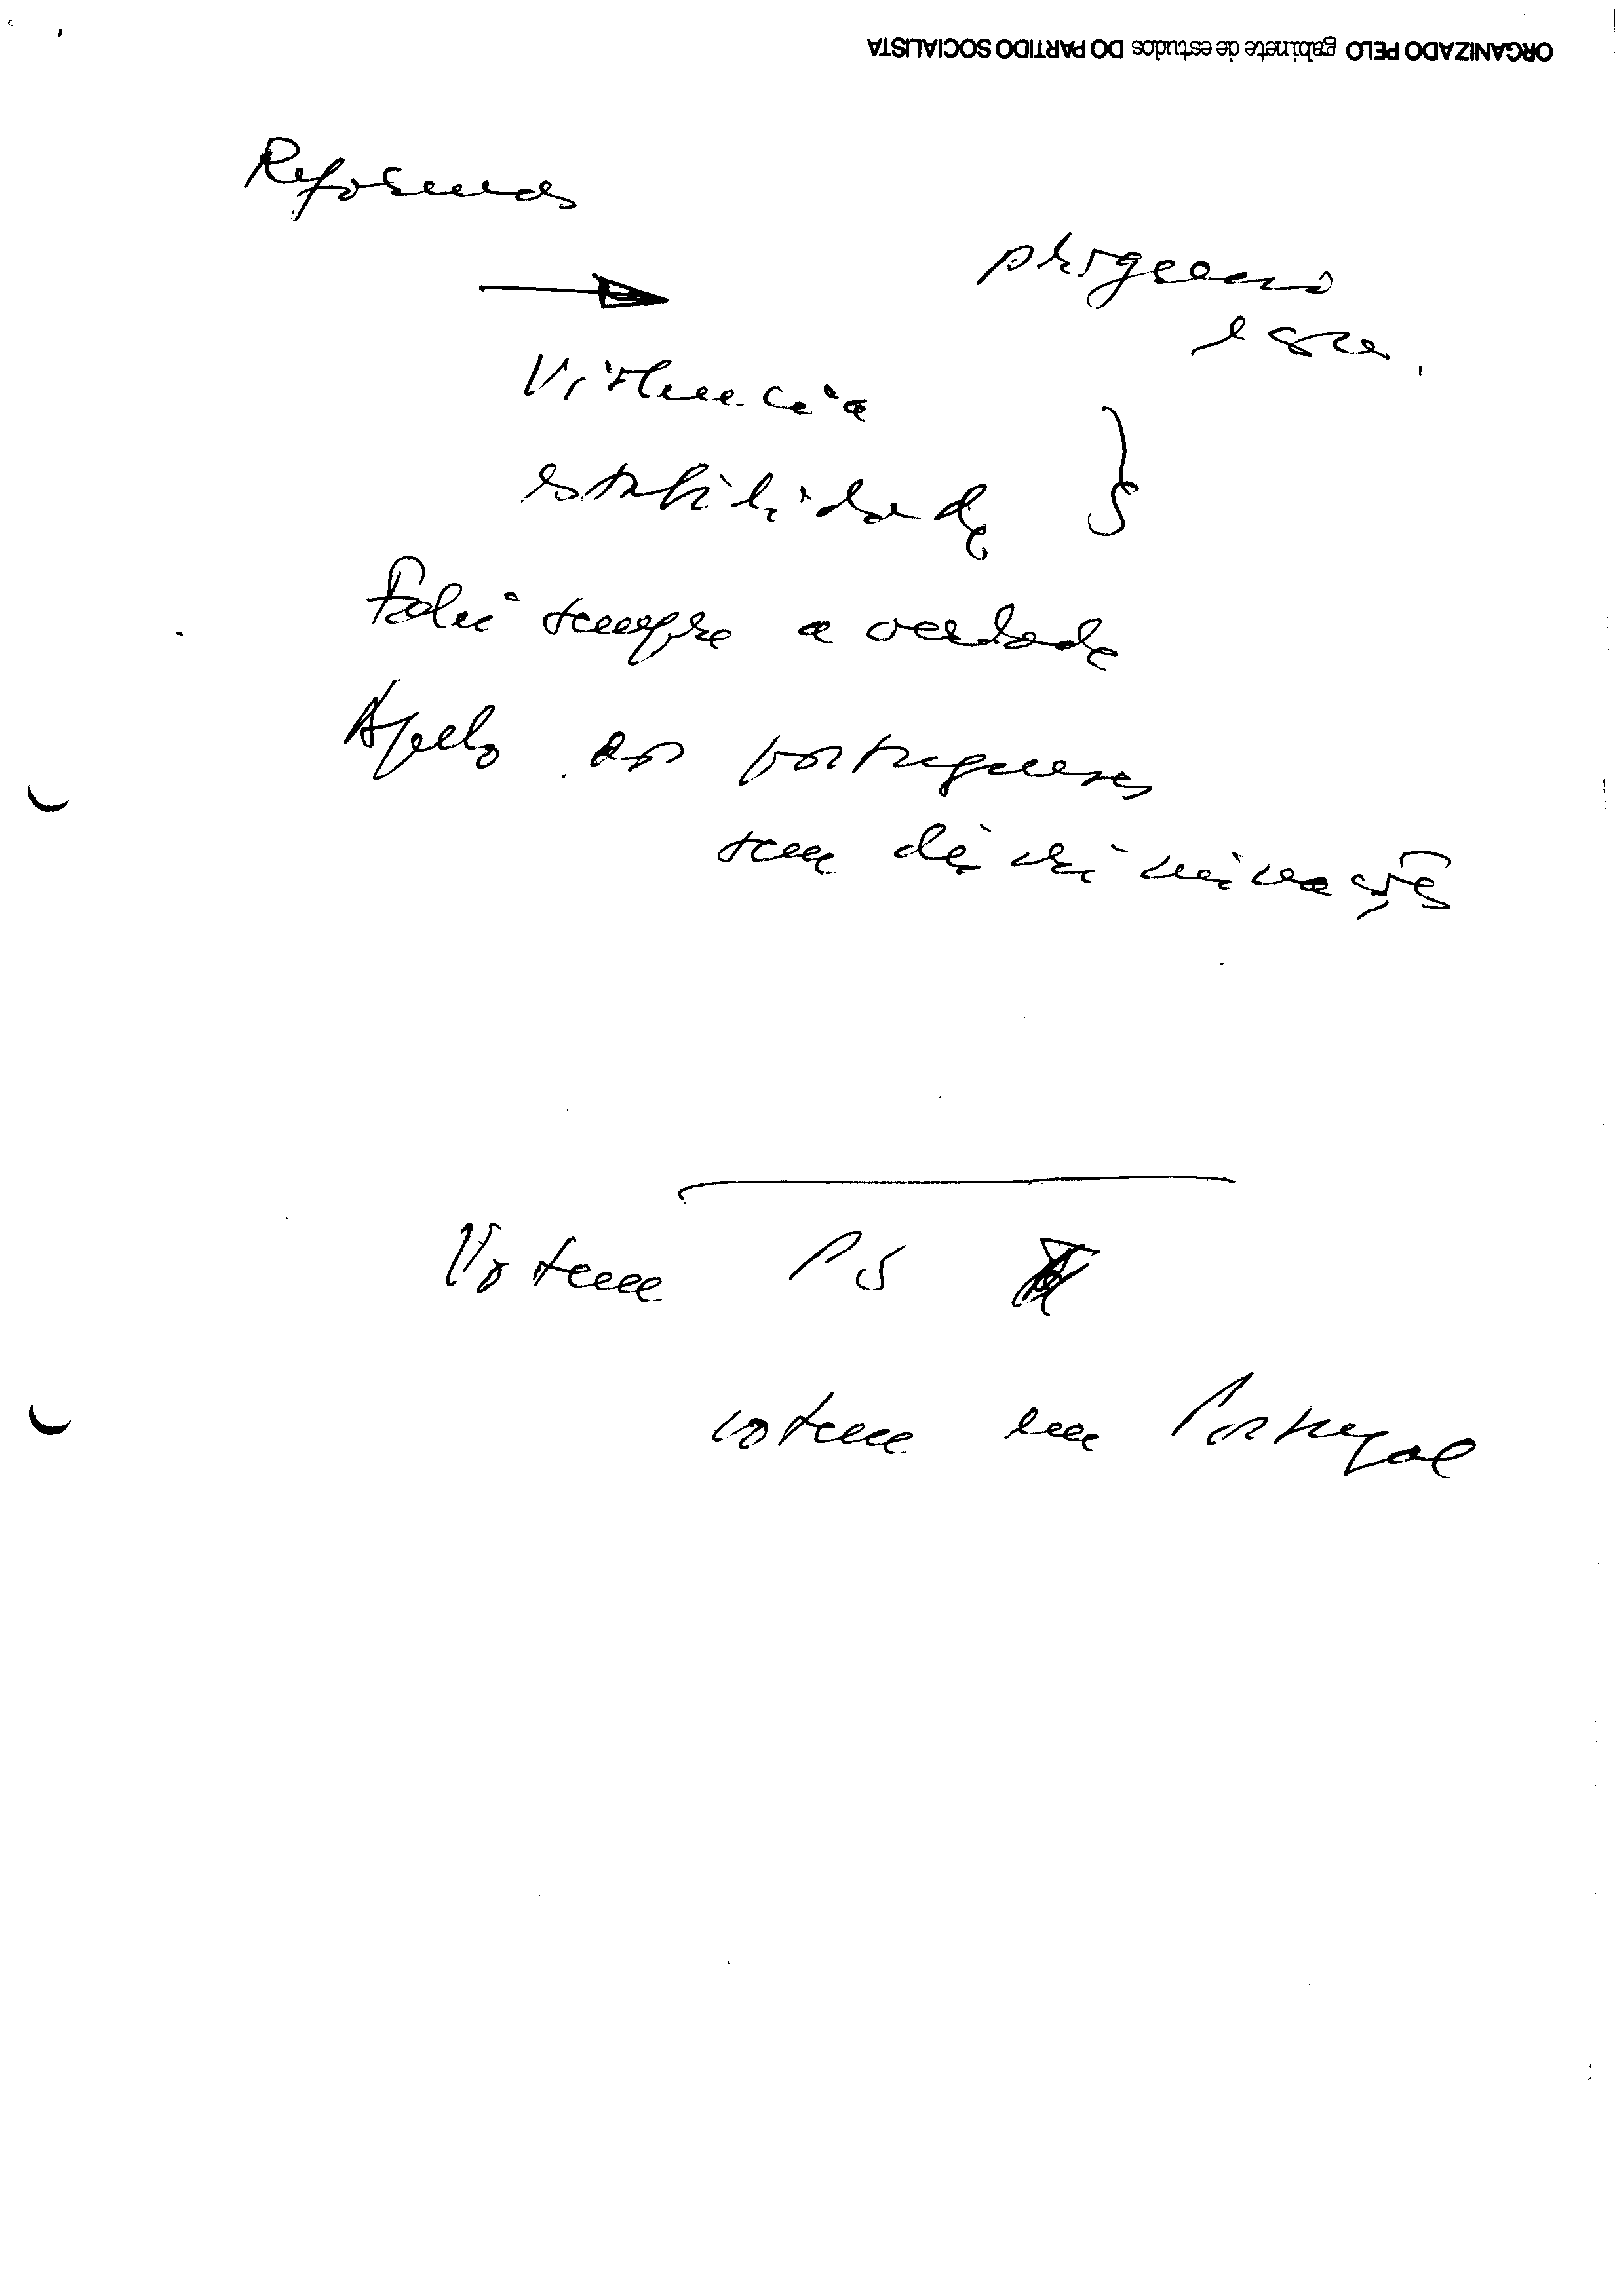 ORGANIZADO PELO gabinete de estudos DO PARTIDO SOCIALISTA
Reformas
programa
Violência
estabilidade
Falei sempre a verdade
Apelo aos portugueses
sem discriminações
Votem PS
votem em Portugal